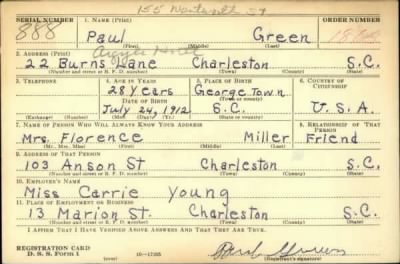 155 Wentworth St
SERIAL NUMBER 1. NAME (Print) ORDER NUMBER
888 Paul Green
(First) (Middle) (Last)
2. ADDRESS (Print)
22 Burns Lane Charleston S.C.
(Number and street or R. F. D. number) (Town) (County) (State)
3. TELEPHONE 4. AGE IN YEARS 5. PLACE OF BIRTH 6. COUNTRY OF CITIZENSHIP
28 Years George Town
DATE OF BIRTH (Town or county)
July 24, 1912 S.C. U.S.A.
(Exchange) (Number) (Mo.) (Day) (Yr.) (State or country)
7. NAME OF PERSON WHO WILL ALWAYS KNOW YOUR ADDRESS 8. RELATIONSHIP OF THAT PERSON
Mrs. Florence Miller Friend
(Mr., Mrs., Miss) (First) (Middle) (Last)
9. ADDRESS OF THAT PERSON
103 Anson St Charleston S.C.
(Number and street or R. F. D. number) (Town) (County) (State)
10. EMPLOYER'S NAME
Miss Carrie Young
11. PLACE OF EMPLOYMENT OR BUSINESS
13 Marion St. Charleston S.C.
(Number and street or R. F. D. number) (Town) (County) (State)
I AFFIRM THAT I HAVE VERIFIED ABOVE ANSWERS AND THAT THEY ARE TRUE.
REGISTRATION CARD
D. S. S. Form 1
(over)
Paul Green